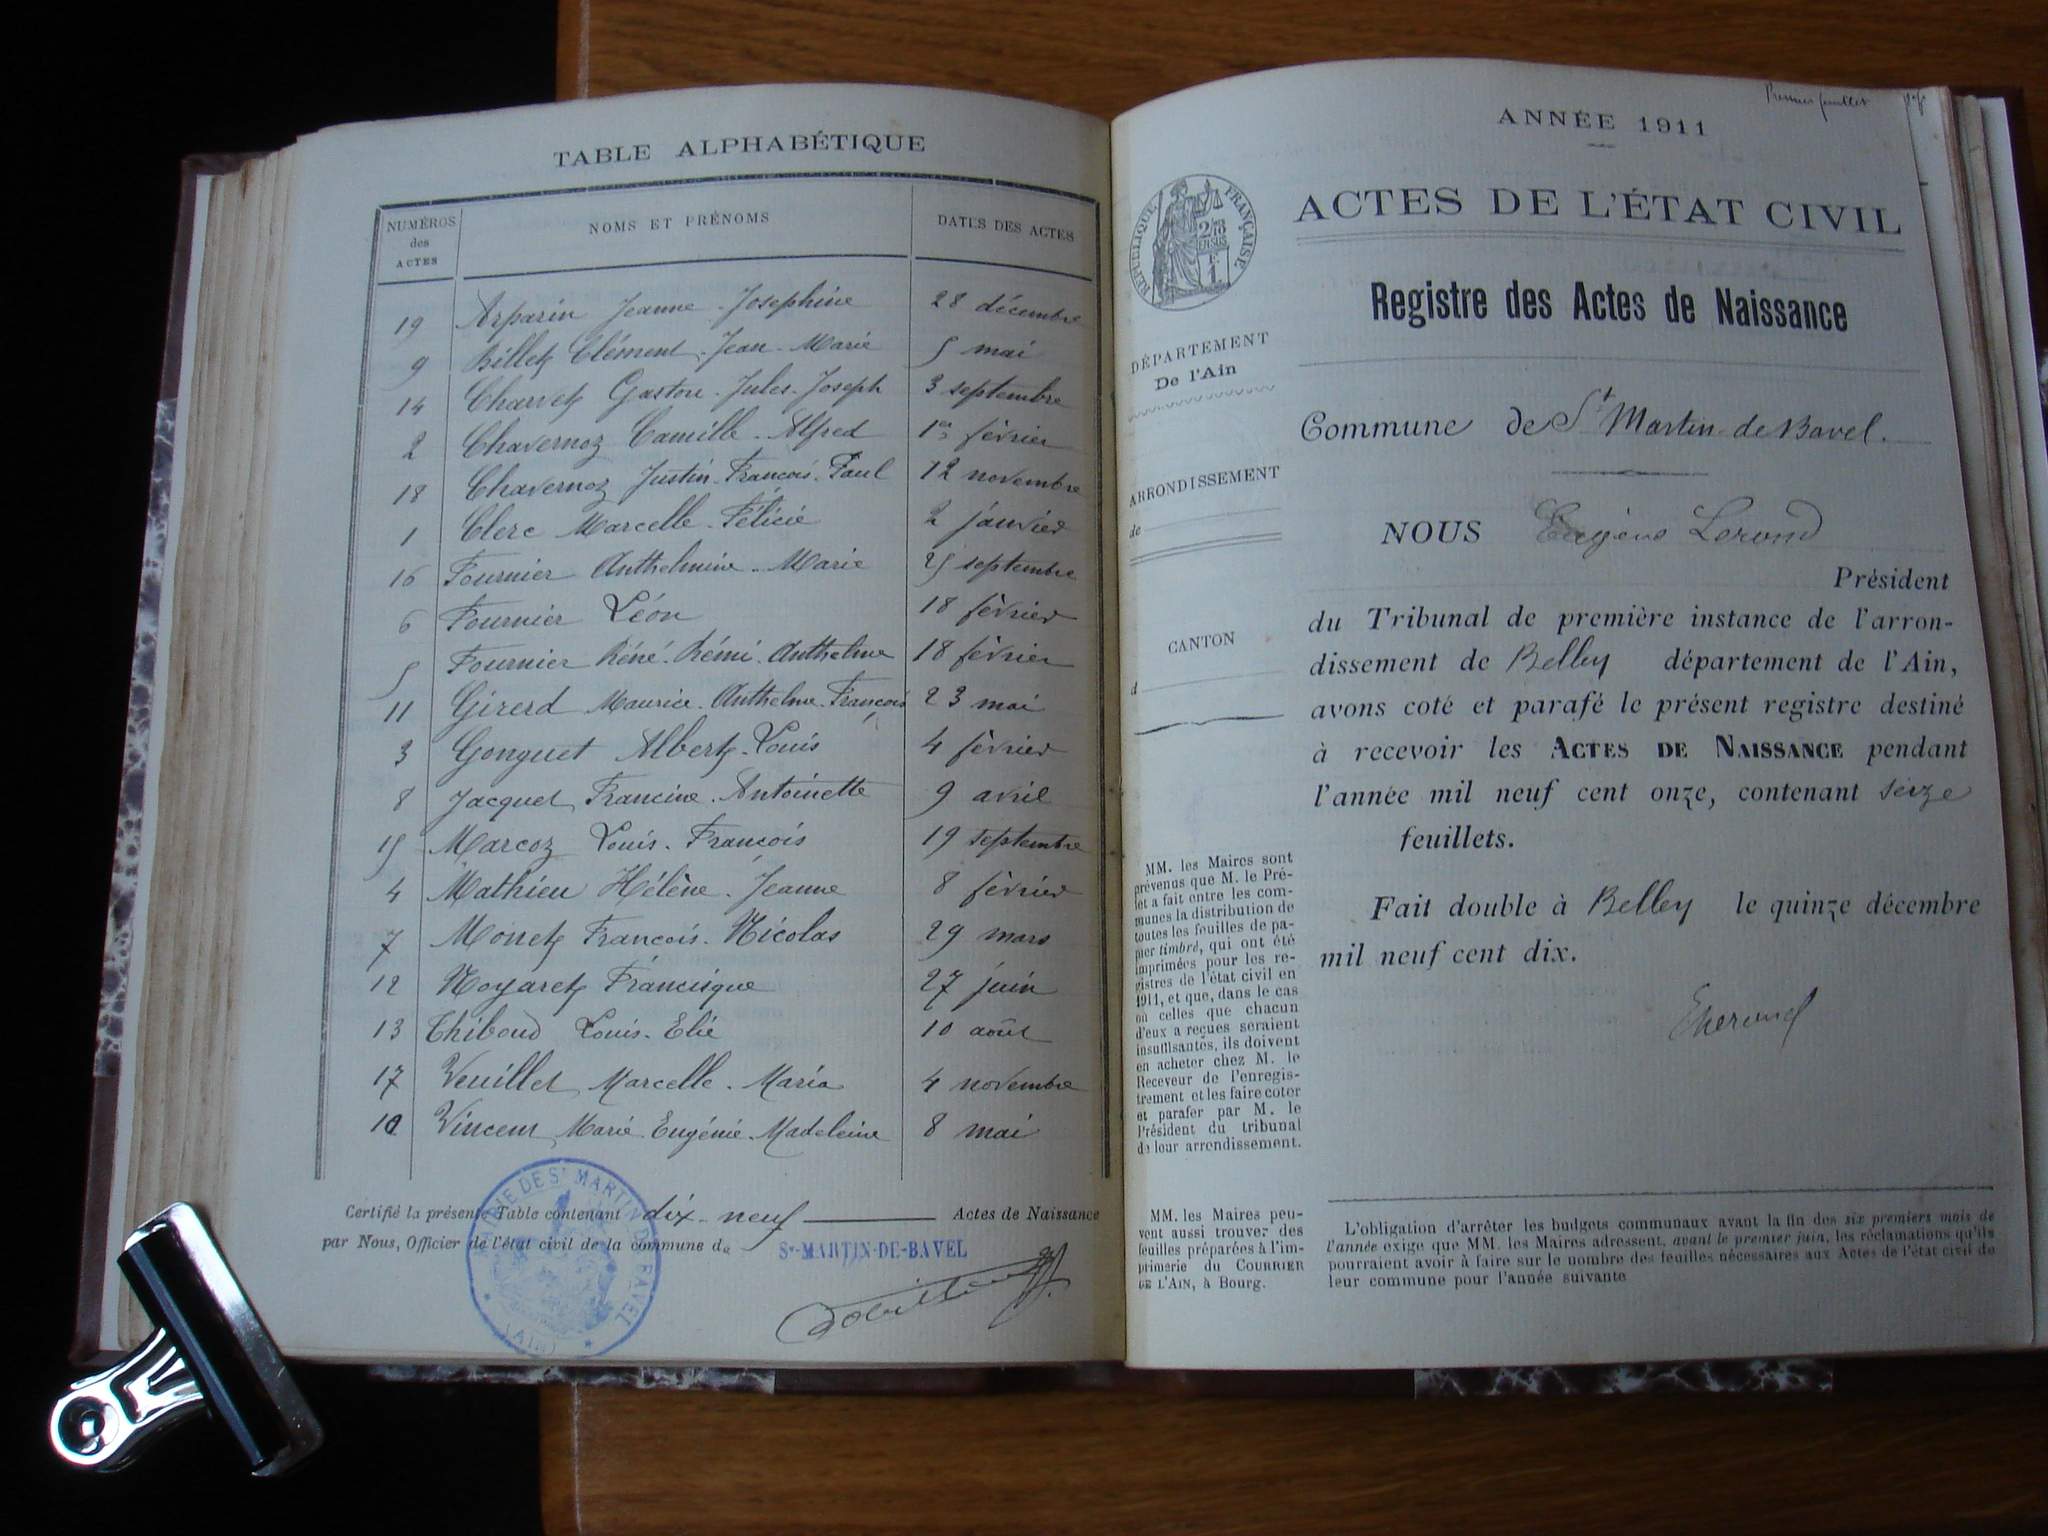 TABLE ALPHABÉTIQUE
NUMÉROS des ACTES NOMS ET PRÉNOMS DATES DES ACTES
19 Arparin Jeanne-Josephine 28 décembre
9 Billet Clément-Jean-Marie 5 mai
14 Charvet Gaston-Jules-Joseph 3 septembre
2 Chavernoz Camille-Alfred 1er février
18 Chavernoz Justin-François-Paul 12 novembre
1 Clerc Marcelle-Félicie 2 janvier
16 Fournier Anthelmine-Marie 25 septembre
6 Fournier Léon 18 février
5 Fournier Réné-Rémi-Anthelme 18 février
11 Girerd Maurice-Anthelme-François 23 mai
3 Gonguet Albert-Louis 4 février
8 Jacquet Francine-Antoinette 9 avril
15 Marcoz Louis-François 19 septembre
4 Mathieu Hélène-Jeanne 8 février
7 Monet François-Nicolas 29 mars
12 Noyaret Francisque 27 juin
13 Thiboud Louis-Elie 10 août
17 Veuillet Marcelle-Maria 4 novembre
10 Vincent Marie-Eugénie-Madeleine 8 mai
Certifié la présente Table contenant dix-neuf Actes de Naissance
par Nous, Officier de l'état civil de la commune de St-MARTIN-DE-BAVEL
MAIRIE DE St MARTIN DE BAVEL
(AIN)
Premier feuillet
ANNÉE 1911
RÉPUBLIQUE FRANÇAISE
2/10 EN SUS
1F
ACTES DE L'ÉTAT CIVIL
Registre des Actes de Naissance
DÉPARTEMENT
De l'Ain
ARRONDISSEMENT
de
CANTON
d
MM. les Maires sont
prévenus que M. le Pré-
fet a fait entre les com-
munes la distribution de
toutes les feuilles de pa-
pier timbré, qui ont été
imprimées pour les re-
gistres de l'état civil en
1911, et que, dans le cas
où celles que chacun
d'eux a reçues seraient
insuffisantes, ils doivent
en acheter chez M. le
Receveur de l'enregis-
trement et les faire coter
et parafer par M. le
Président du tribunal
de leur arrondissement.
MM. les Maires peu-
vent aussi trouver des
feuilles préparées à l'im-
primerie du COURRIER
DE L'AIN, à Bourg.
Commune de St Martin-de Bavel.
NOUS Eugène Lerond
Président
du Tribunal de première instance de l'arron-
dissement de Belley département de l'Ain,
avons coté et parafé le présent registre destiné
à recevoir les ACTES DE NAISSANCE pendant
l'année mil neuf cent onze, contenant seize
feuillets.
Fait double à Belley le quinze décembre
mil neuf cent dix.
L'obligation d'arrêter les budgets communaux avant la fin des six premiers mois de
l'année exige que MM. les Maires adressent, avant le premier juin, les réclamations qu'ils
pourraient avoir à faire sur le nombre des feuilles nécessaires aux Actes de l'état civil de
leur commune pour l'année suivante